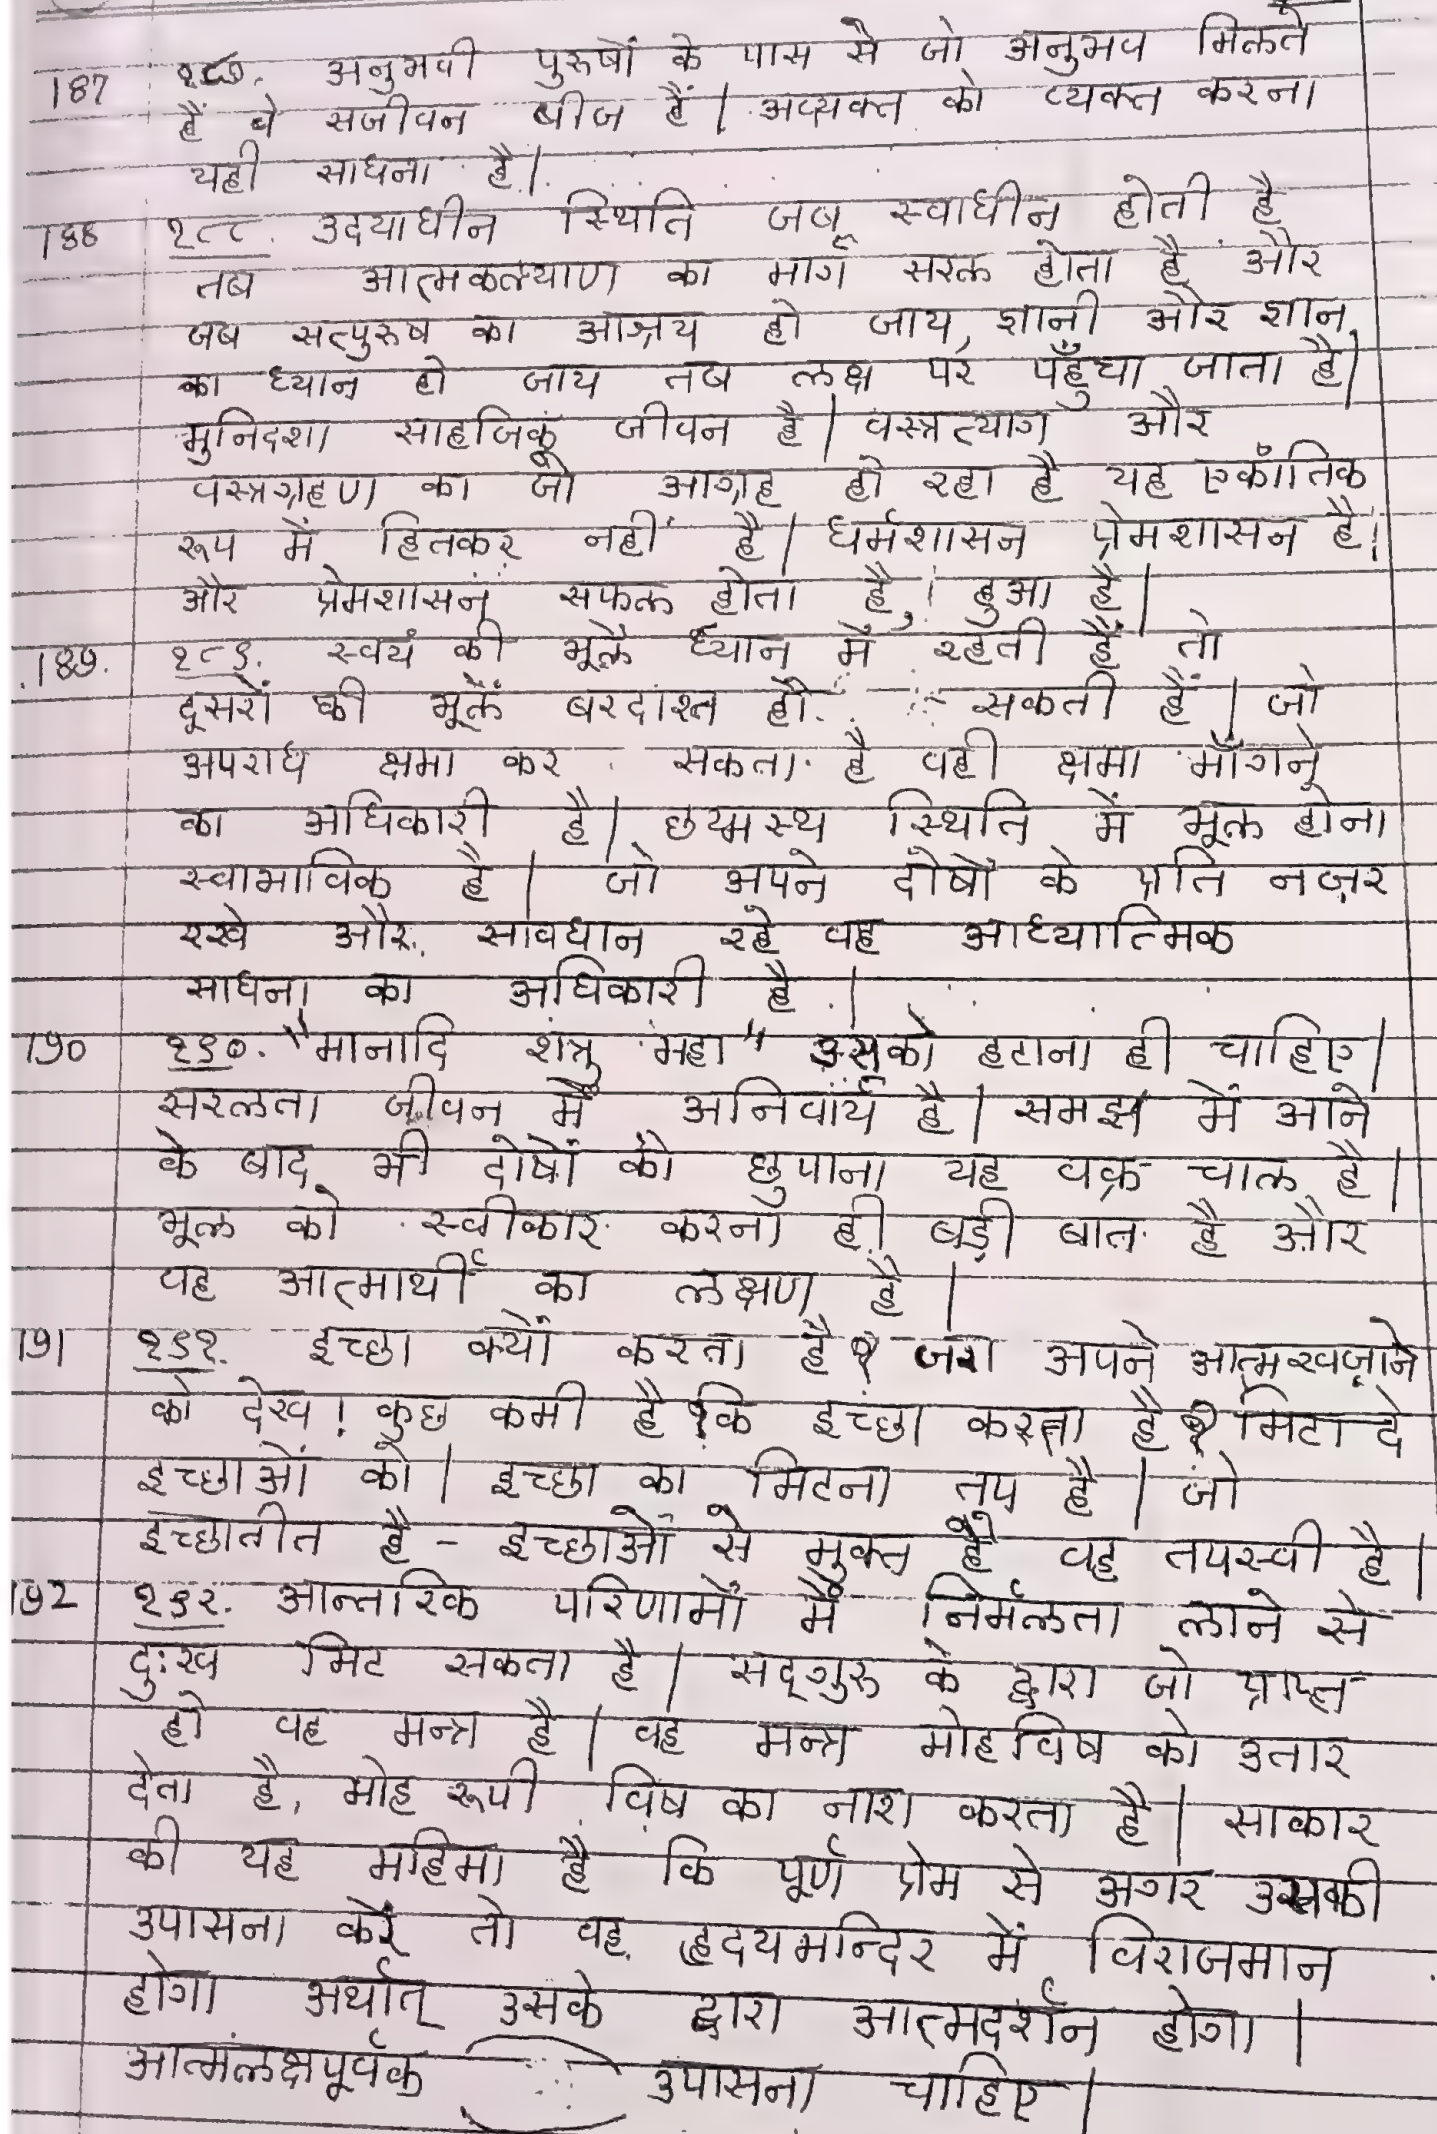 187 १८७. अनुभवी पुरुषों के पास से जो अनुभव मिलते
हैं वे सजीवन बीज हैं | अव्यक्त को व्यक्त करना
यही साधना है |
188 १८८. उदयाधीन स्थिति जब स्वाधीन होती है
तब आत्मकल्याण का मार्ग सरल होता है और
जब सत्पुरुष का आश्रय हो जाय, ज्ञानी और ज्ञान
का ध्यान हो जाय तब लक्ष पर पहुँचा जाता है |
मुनिदशा साहजिक जीवन है | वस्त्रत्याग और
वस्त्रग्रहण का जो आग्रह हो रहा है यह एकाँतिक
रूप में हितकर नहीं है | धर्मशासन प्रेमशासन है |
और प्रेमशासन सफल होता है, हुआ है |
189. १८९. स्वयं की भूलें ध्यान में रहती हैं तो
दूसरों की भूलें बरदाश्त हो सकती हैं | जो
अपराध क्षमा कर सकता है वही क्षमा माँगने
का अधिकारी है | छद्मस्थ स्थिति में भूल होना
स्वाभाविक है | जो अपने दोषों के प्रति नज़र
रखे और सावधान रहे वह आध्यात्मिक
साधना का अधिकारी है |
190 १९०. "मानादि शत्रु महा" उसको हटाना ही चाहिए |
सरलता जीवन में अनिवार्य है | समझ में आने
के बाद भी दोषों को छुपाना यह वक्र चाल है |
भूल को स्वीकार करना ही बड़ी बात है और
यह आत्मार्थी का लक्षण है |
191 १९१. इच्छा क्यों करता है ? जरा अपने आत्मखज़ाने
को देख ! कुछ कमी है कि इच्छा करता है ? मिटा दे
इच्छाओं को | इच्छा का मिटना तप है | जो
इच्छातीत है - इच्छाओं से मुक्त है वह तपस्वी है |
192 १९२. आन्तरिक परिणामों में निर्मलता लाने से
दुःख मिट सकता है | सद्गुरु के द्वारा जो प्राप्त
हो वह मन्त्र है | वह मन्त्र मोहविष को उतार
देता है, मोह रूपी विष का नाश करता है | साकार
की यह महिमा है कि पूर्ण प्रेम से अगर उसकी
उपासना करें तो वह हृदयमन्दिर में विराजमान
होगा अर्थात् उसके द्वारा आत्मदर्शन होगा |
आत्मलक्षपूर्वक उपासना चाहिए |